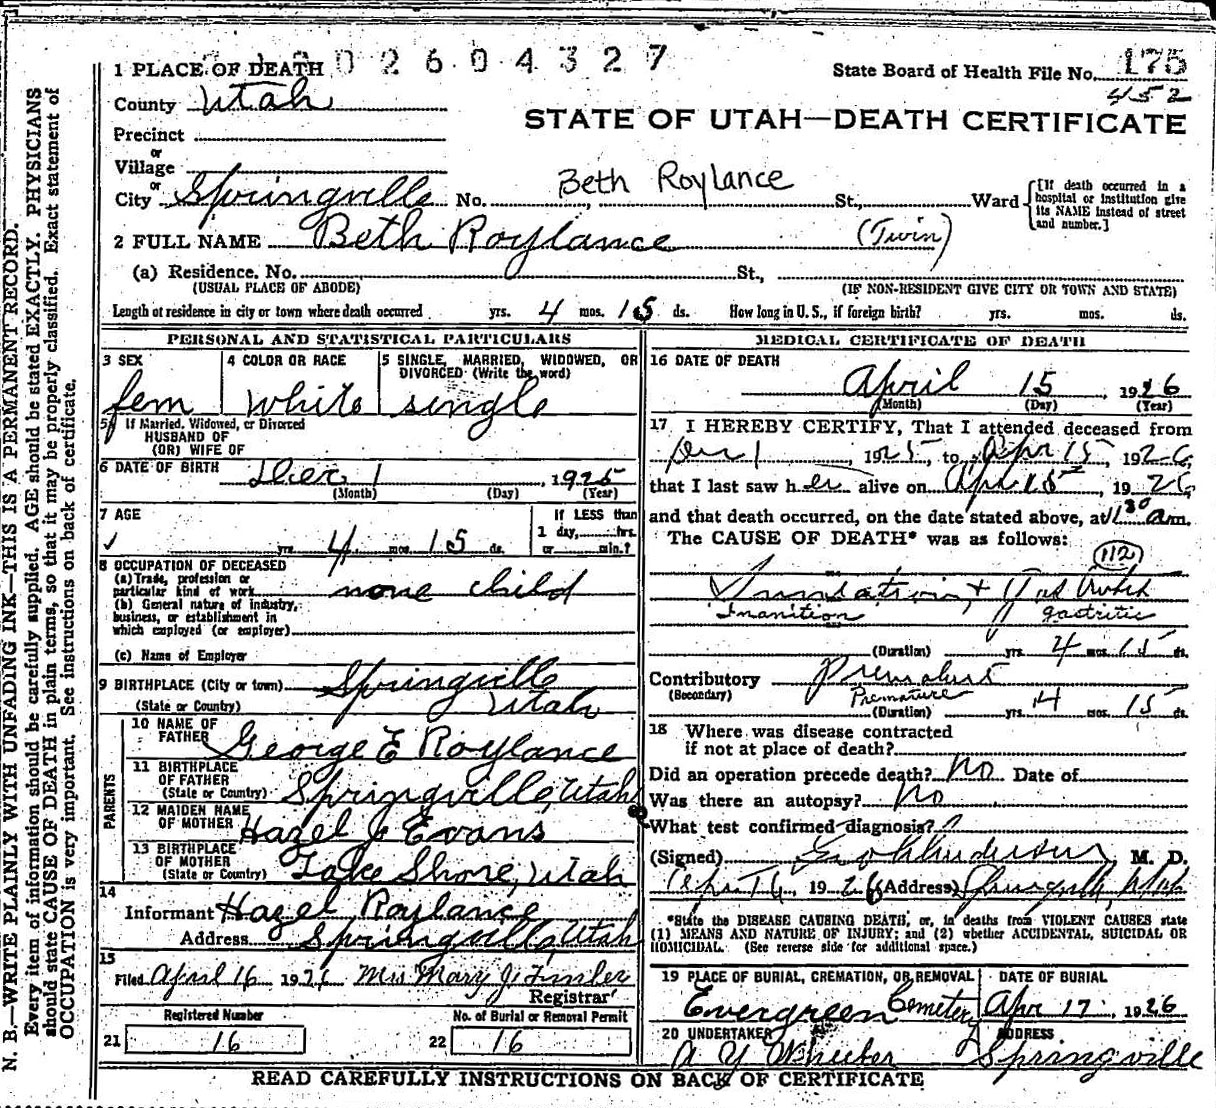 N. B.—WRITE PLAINLY WITH UNFADING INK—THIS IS A PERMANENT RECORD.
Every item of information should be carefully supplied. AGE should be stated EXACTLY. PHYSICIANS
should state CAUSE OF DEATH in plain terms, so that it may be properly classified. Exact statement of
OCCUPATION is very important. See instructions on back of certificate.
02604327
1 PLACE OF DEATH
State Board of Health File No. 175
452
County Utah
STATE OF UTAH—DEATH CERTIFICATE
Precinct
or
Village
or
City Springville No. Beth Roylance St., Ward
[If death occurred in a
hospital or institution give
its NAME instead of street
and number.]
2 FULL NAME Beth Roylance (Twin)
(a) Residence. No. St.,
(USUAL PLACE OF ABODE) (IF NON-RESIDENT GIVE CITY OR TOWN AND STATE)
Length of residence in city or town where death occurred yrs. 4 mos. 15 ds. How long in U. S., if foreign birth? yrs. mos. ds.
PERSONAL AND STATISTICAL PARTICULARS
3 SEX
fem
4 COLOR OR RACE
white
5 SINGLE, MARRIED, WIDOWED, OR
DIVORCED (Write the word)
single
5a If Married, Widowed, or Divorced
HUSBAND OF
(OR) WIFE OF
6 DATE OF BIRTH Dec 1, 1925
(Month) (Day) (Year)
7 AGE
yrs. 4 mos. 15 ds.
If LESS than
1 day, hrs.
or min.?
8 OCCUPATION OF DECEASED
(a) Trade, profession or
particular kind of work none child
(b) General nature of industry,
business, or establishment in
which employed (or employer)
(c) Name of Employer
9 BIRTHPLACE (City or town) Springville
(State or Country) Utah
PARENTS
10 NAME OF
FATHER George E Roylance
11 BIRTHPLACE
OF FATHER
(State or Country) Springville, Utah
12 MAIDEN NAME
OF MOTHER Hazel J Evans
13 BIRTHPLACE
OF MOTHER
(State or Country) Lake Shore, Utah
14
Informant Hazel Roylance
Address Springville, Utah
15
Filed April 16 1926 Mrs Mary J
Registrar
Registered Number
21 16
No. of Burial or Removal Permit
22 16
MEDICAL CERTIFICATE OF DEATH
16 DATE OF DEATH
April 15 1926
(Month) (Day) (Year)
17 I HEREBY CERTIFY, That I attended deceased from
Dec 1, 1925, to Apr 15, 1926,
that I last saw her alive on Apr 15, 1926
and that death occurred, on the date stated above, at 11 30 am.
The CAUSE OF DEATH* was as follows:
112
Inanition gastritic
(Duration) yrs. 4 mos. 15 ds.
Contributory
(Secondary) Premature
(Duration) yrs. 4 mos. 15 ds.
18 Where was disease contracted
if not at place of death?
Did an operation precede death? No Date of
Was there an autopsy? No
What test confirmed diagnosis?
(Signed) M. D.
1926 (Address) Springville, Utah
*State the DISEASE CAUSING DEATH, or, in deaths from VIOLENT CAUSES state
(1) MEANS AND NATURE OF INJURY; and (2) whether ACCIDENTAL, SUICIDAL OR
HOMICIDAL. (See reverse side for additional space.)
19 PLACE OF BURIAL, CREMATION, OR REMOVAL
Evergreen Cemetery
DATE OF BURIAL
Apr 17, 1926
20 UNDERTAKER
A Y Wheeler
ADDRESS
Springville
READ CAREFULLY INSTRUCTIONS ON BACK OF CERTIFICATE